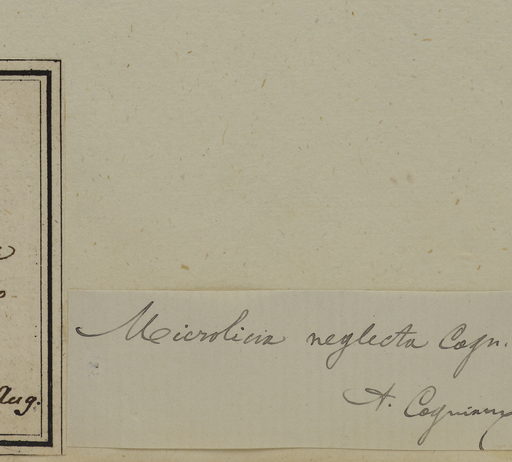 Aug.
Microlicia neglecta Cogn.
A. Cogniaux